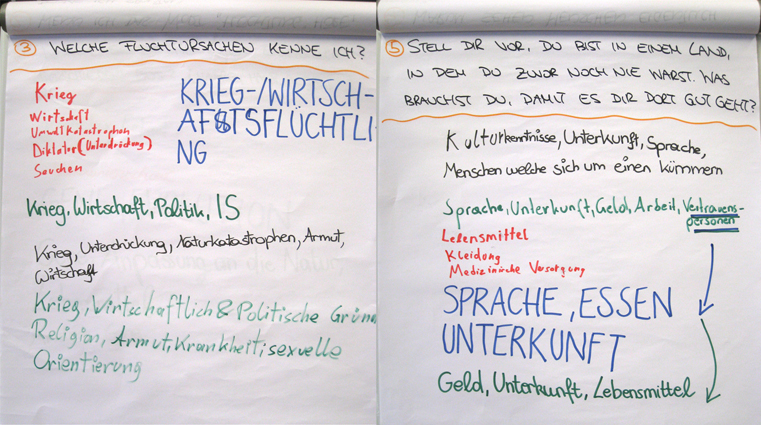 ③ WELCHE FLUCHTURSACHEN KENNE ICH?
Krieg
Wirtschaft
Umweltkatastrophen
Diktator (Unterdrückung)
Seuchen
KRIEG-/WIRTSCH-
AFSTSFLÜCHTLI
NG
Krieg, Wirtschaft, Politik, IS
Krieg, Unterdrückung, Naturkatastrophen, Armut,
Wirtschaft
Krieg, Wirtschaftlich & Politische Gründ
Religion, Armut, Krankheit, sexuelle
Orientierung
⑤ STELL DIR VOR, DU BIST IN EINEM LAND,
IN DEM DU ZUVOR NOCH NIE WARST. WAS
BRAUCHST DU, DAMIT ES DIR DORT GUT GEHT?
Kulturkentnisse, Unterkunft, Sprache,
Menschen welche sich um einen kümmern
Sprache, Unterkunft, Geld, Arbeit, Vertrauens-
personen
Lebensmittel
Kleidung
Medizinische Versorgung
SPRACHE, ESSEN
UNTERKUNFT
Geld, Unterkunft, Lebensmittel